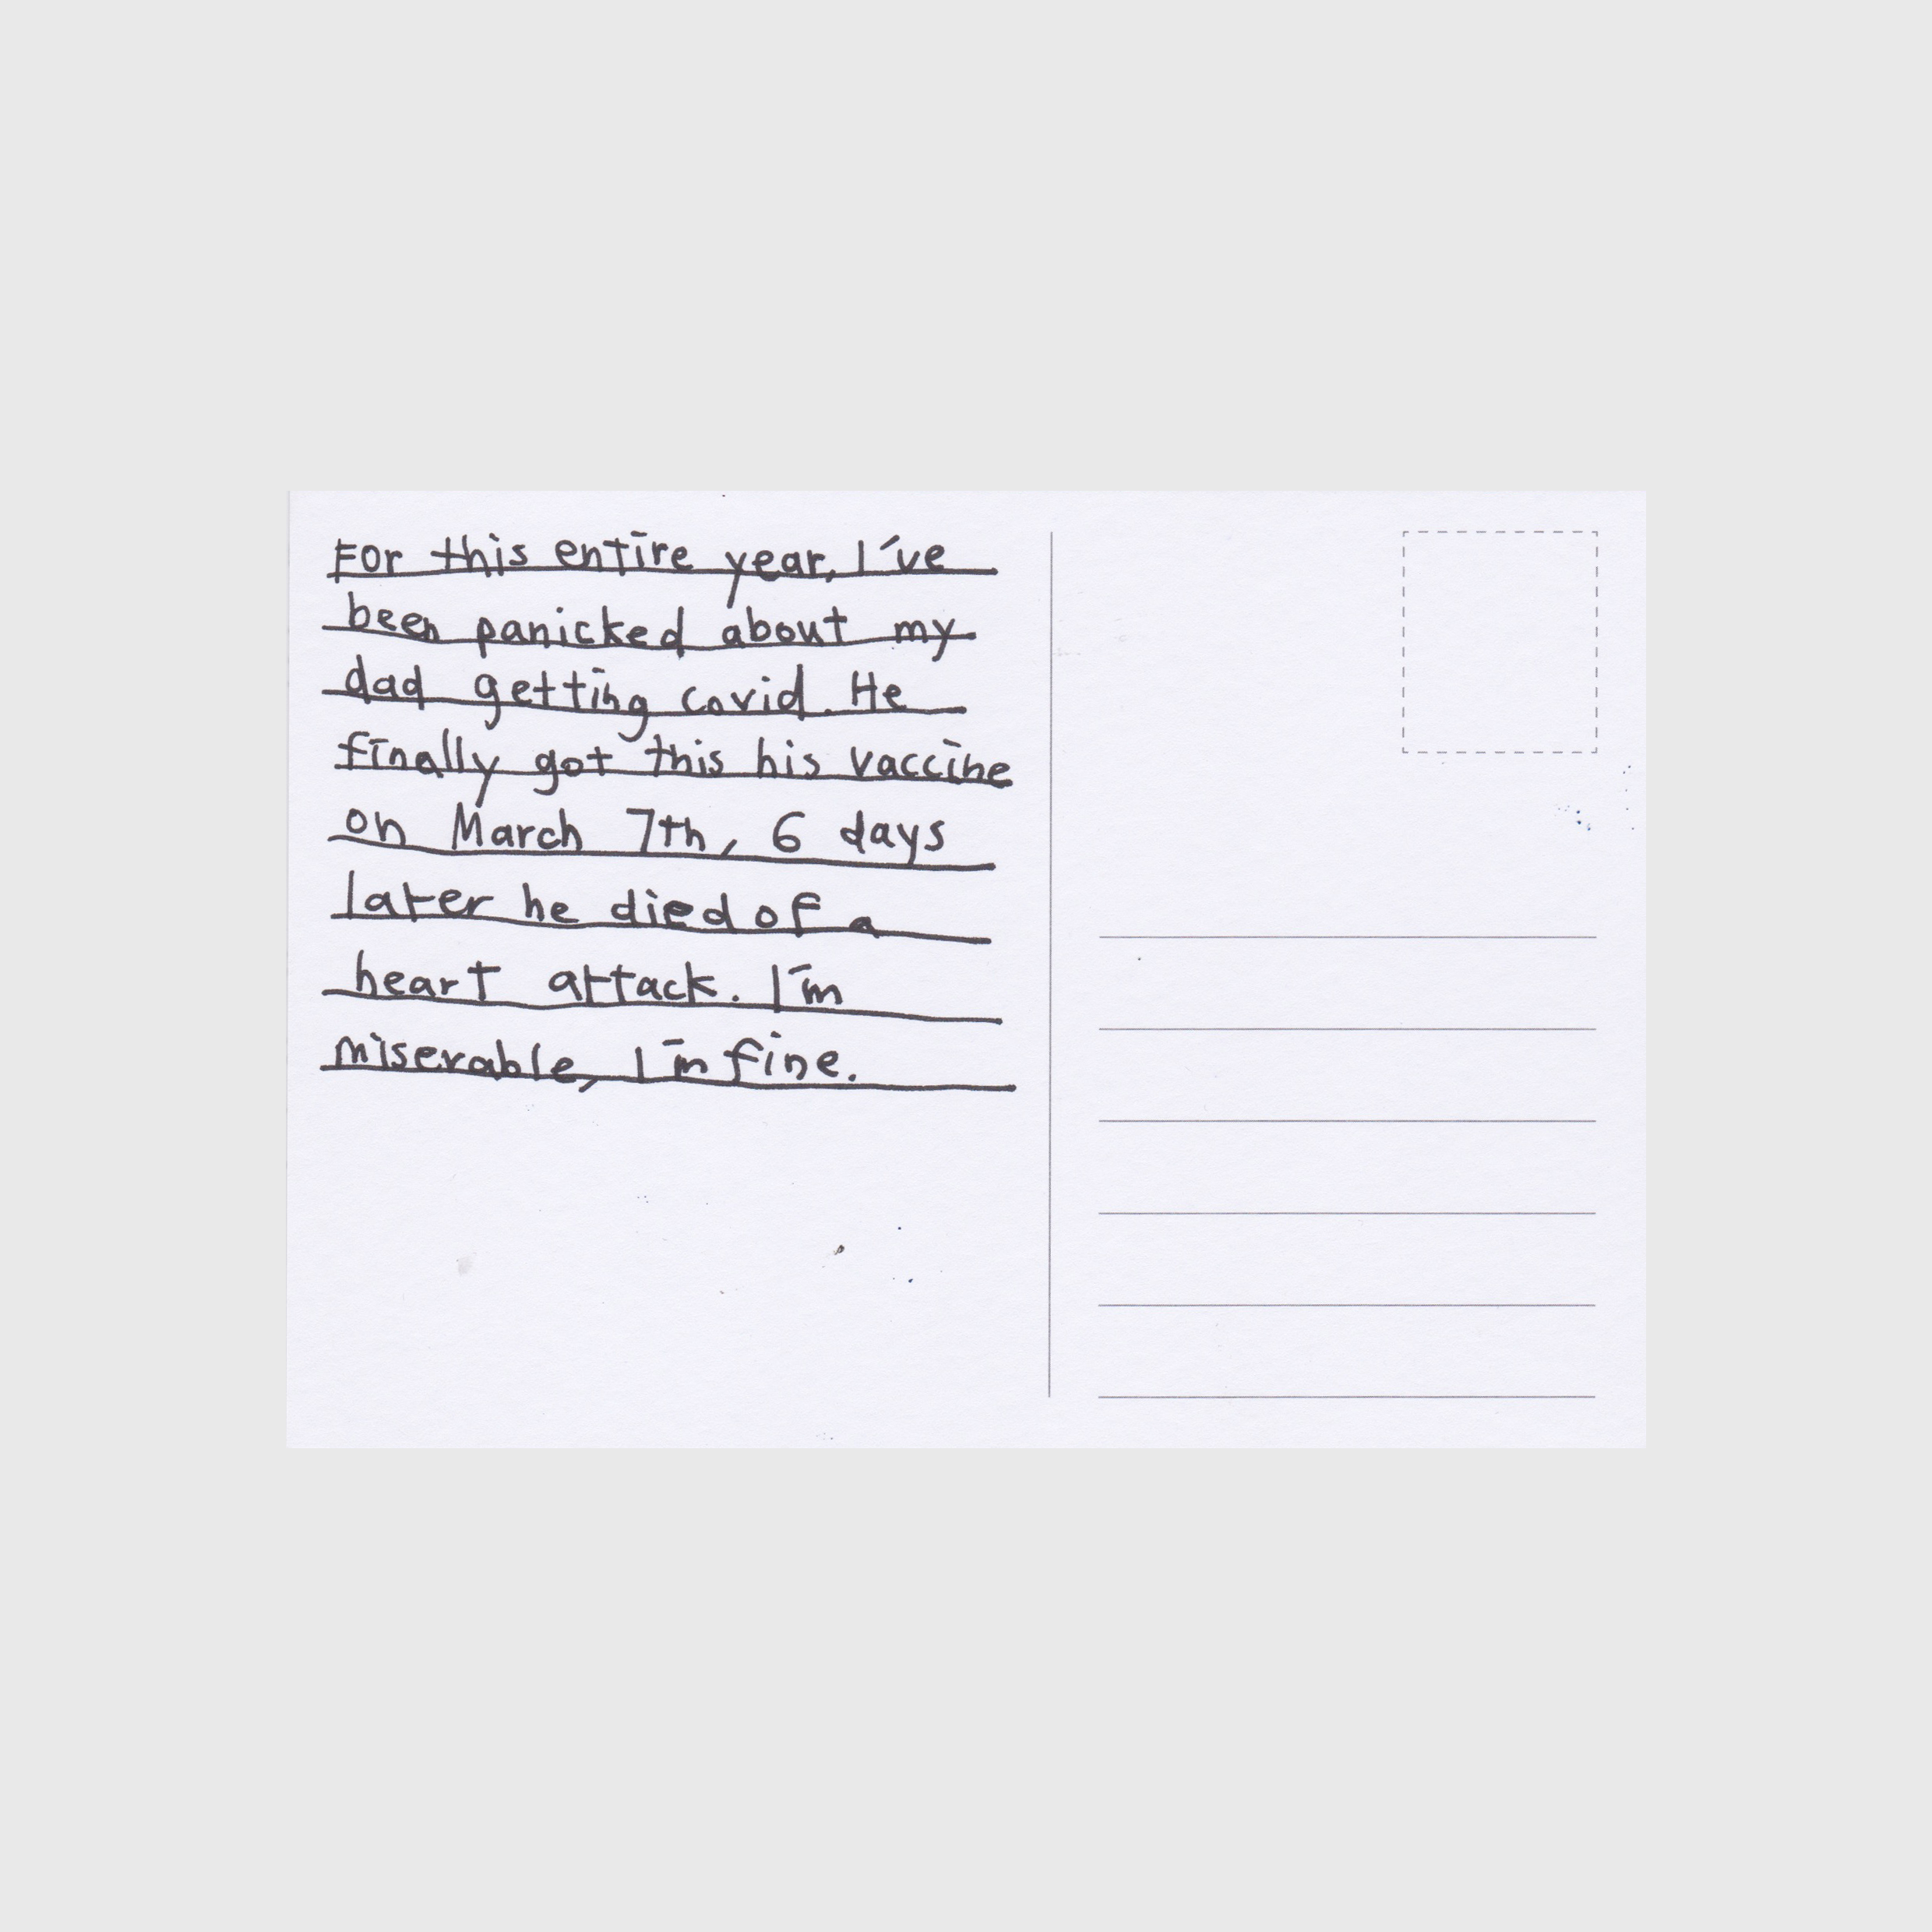 For this entire year, I've
been panicked about my
dad getting covid. He
finally got this his vaccine
on March 7th, 6 days
later he died of a
heart attack. I'm
miserable, I'm fine.